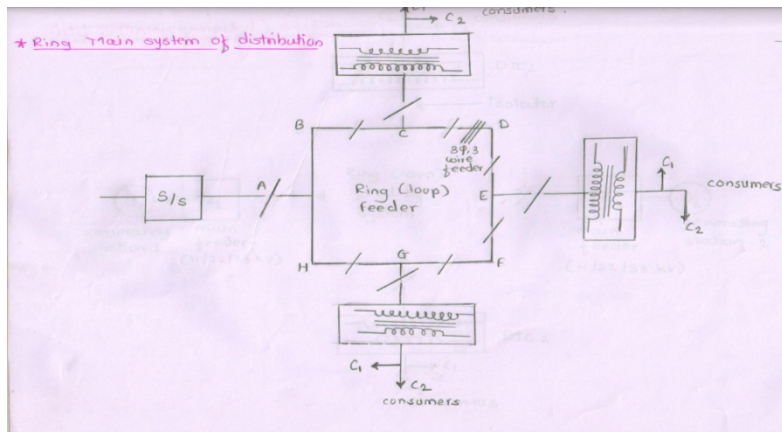 C1
C2
consumers.
* Ring Main system of distribution
B
C
D
3φ,3
wire
feeder
S/s
A
Ring (loop)
feeder
E
C1
consumers
C2
H
G
F
C1
C2
consumers